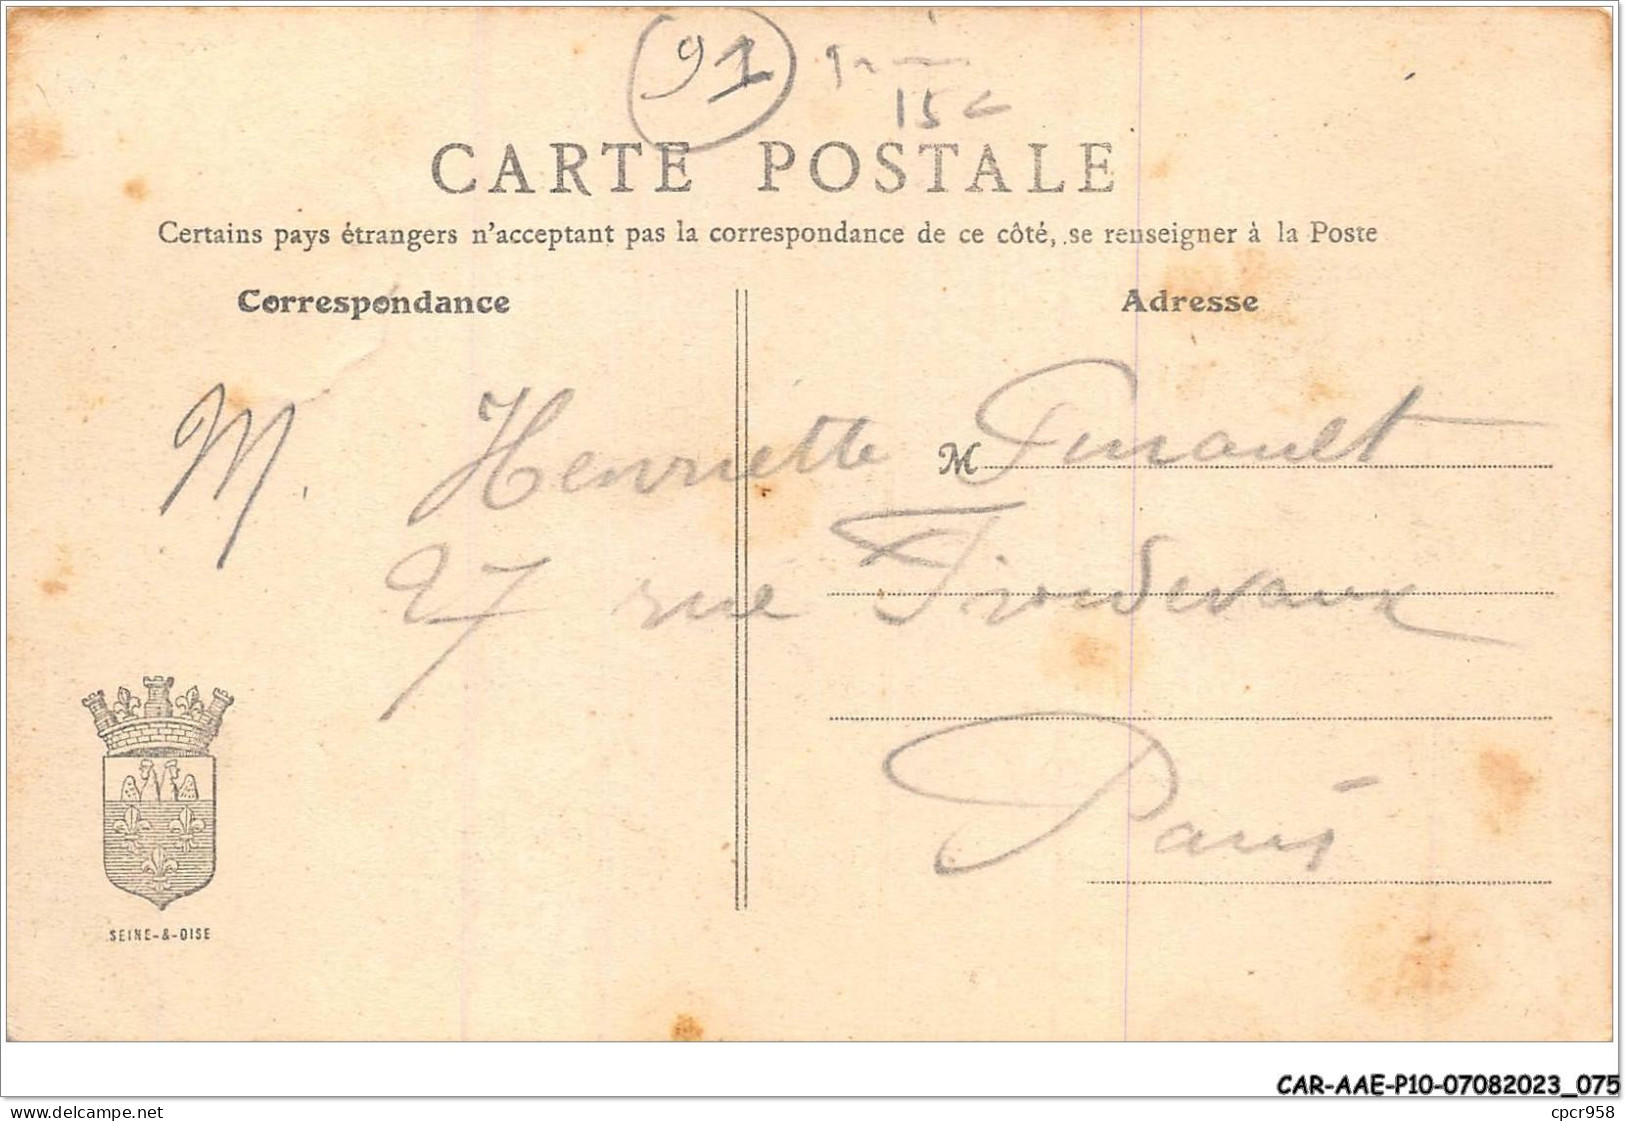 91
15 c
CARTE POSTALE
Certains pays étrangers n'acceptant pas la correspondance de ce côté, se renseigner à la Poste
Correspondance
Adresse
M. Henriette M
27 rue Froidevaux
Paris
SEINE-&-OISE
CAR-AAE-P10-07082023_075
www.delcampe.net
cpcr958